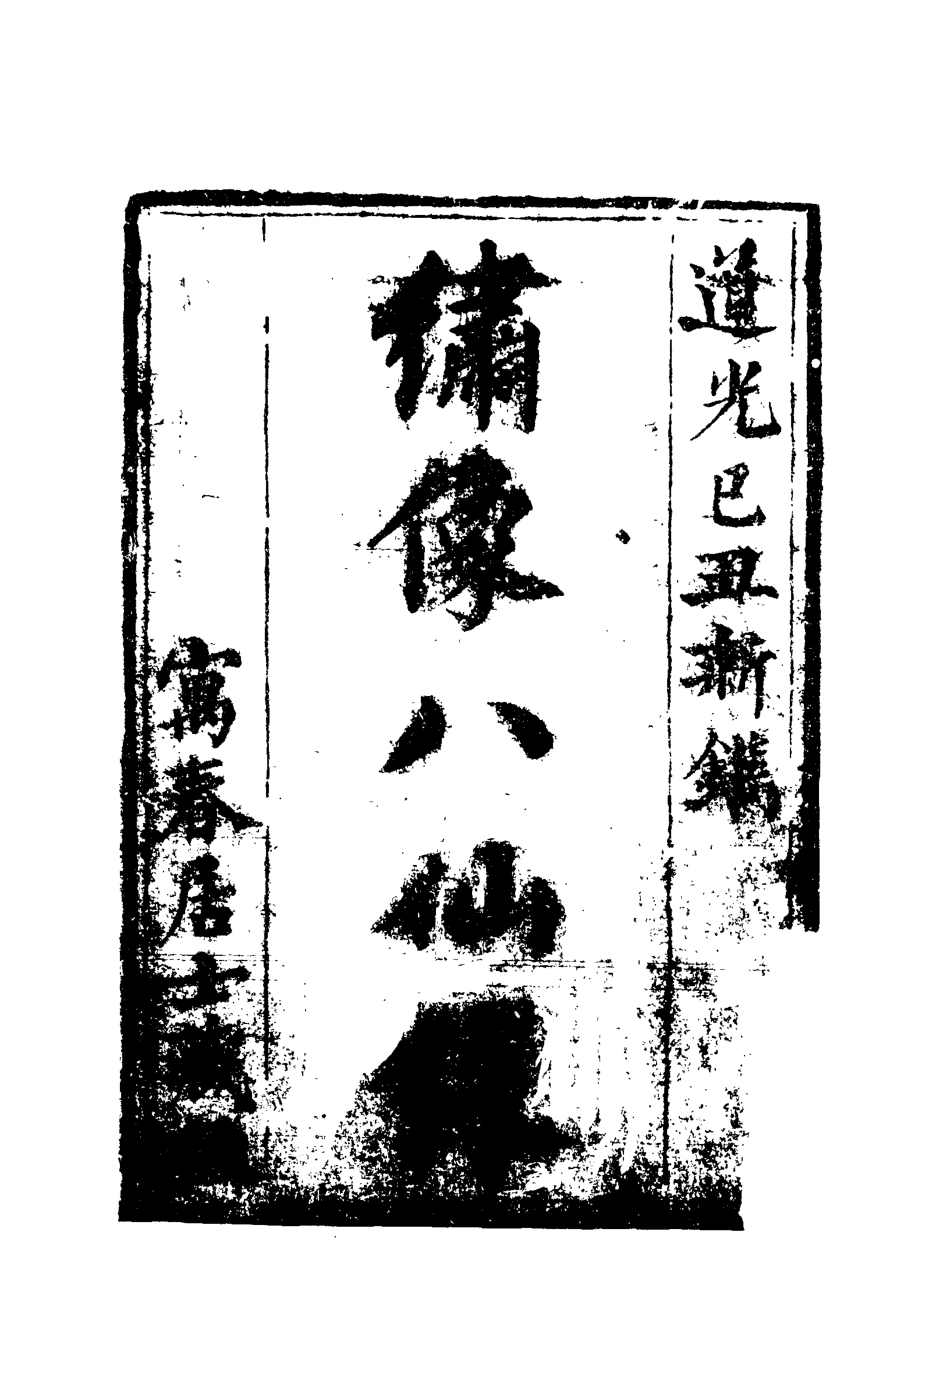 道光己丑新鐫
繡像八仙緣
寓春居士